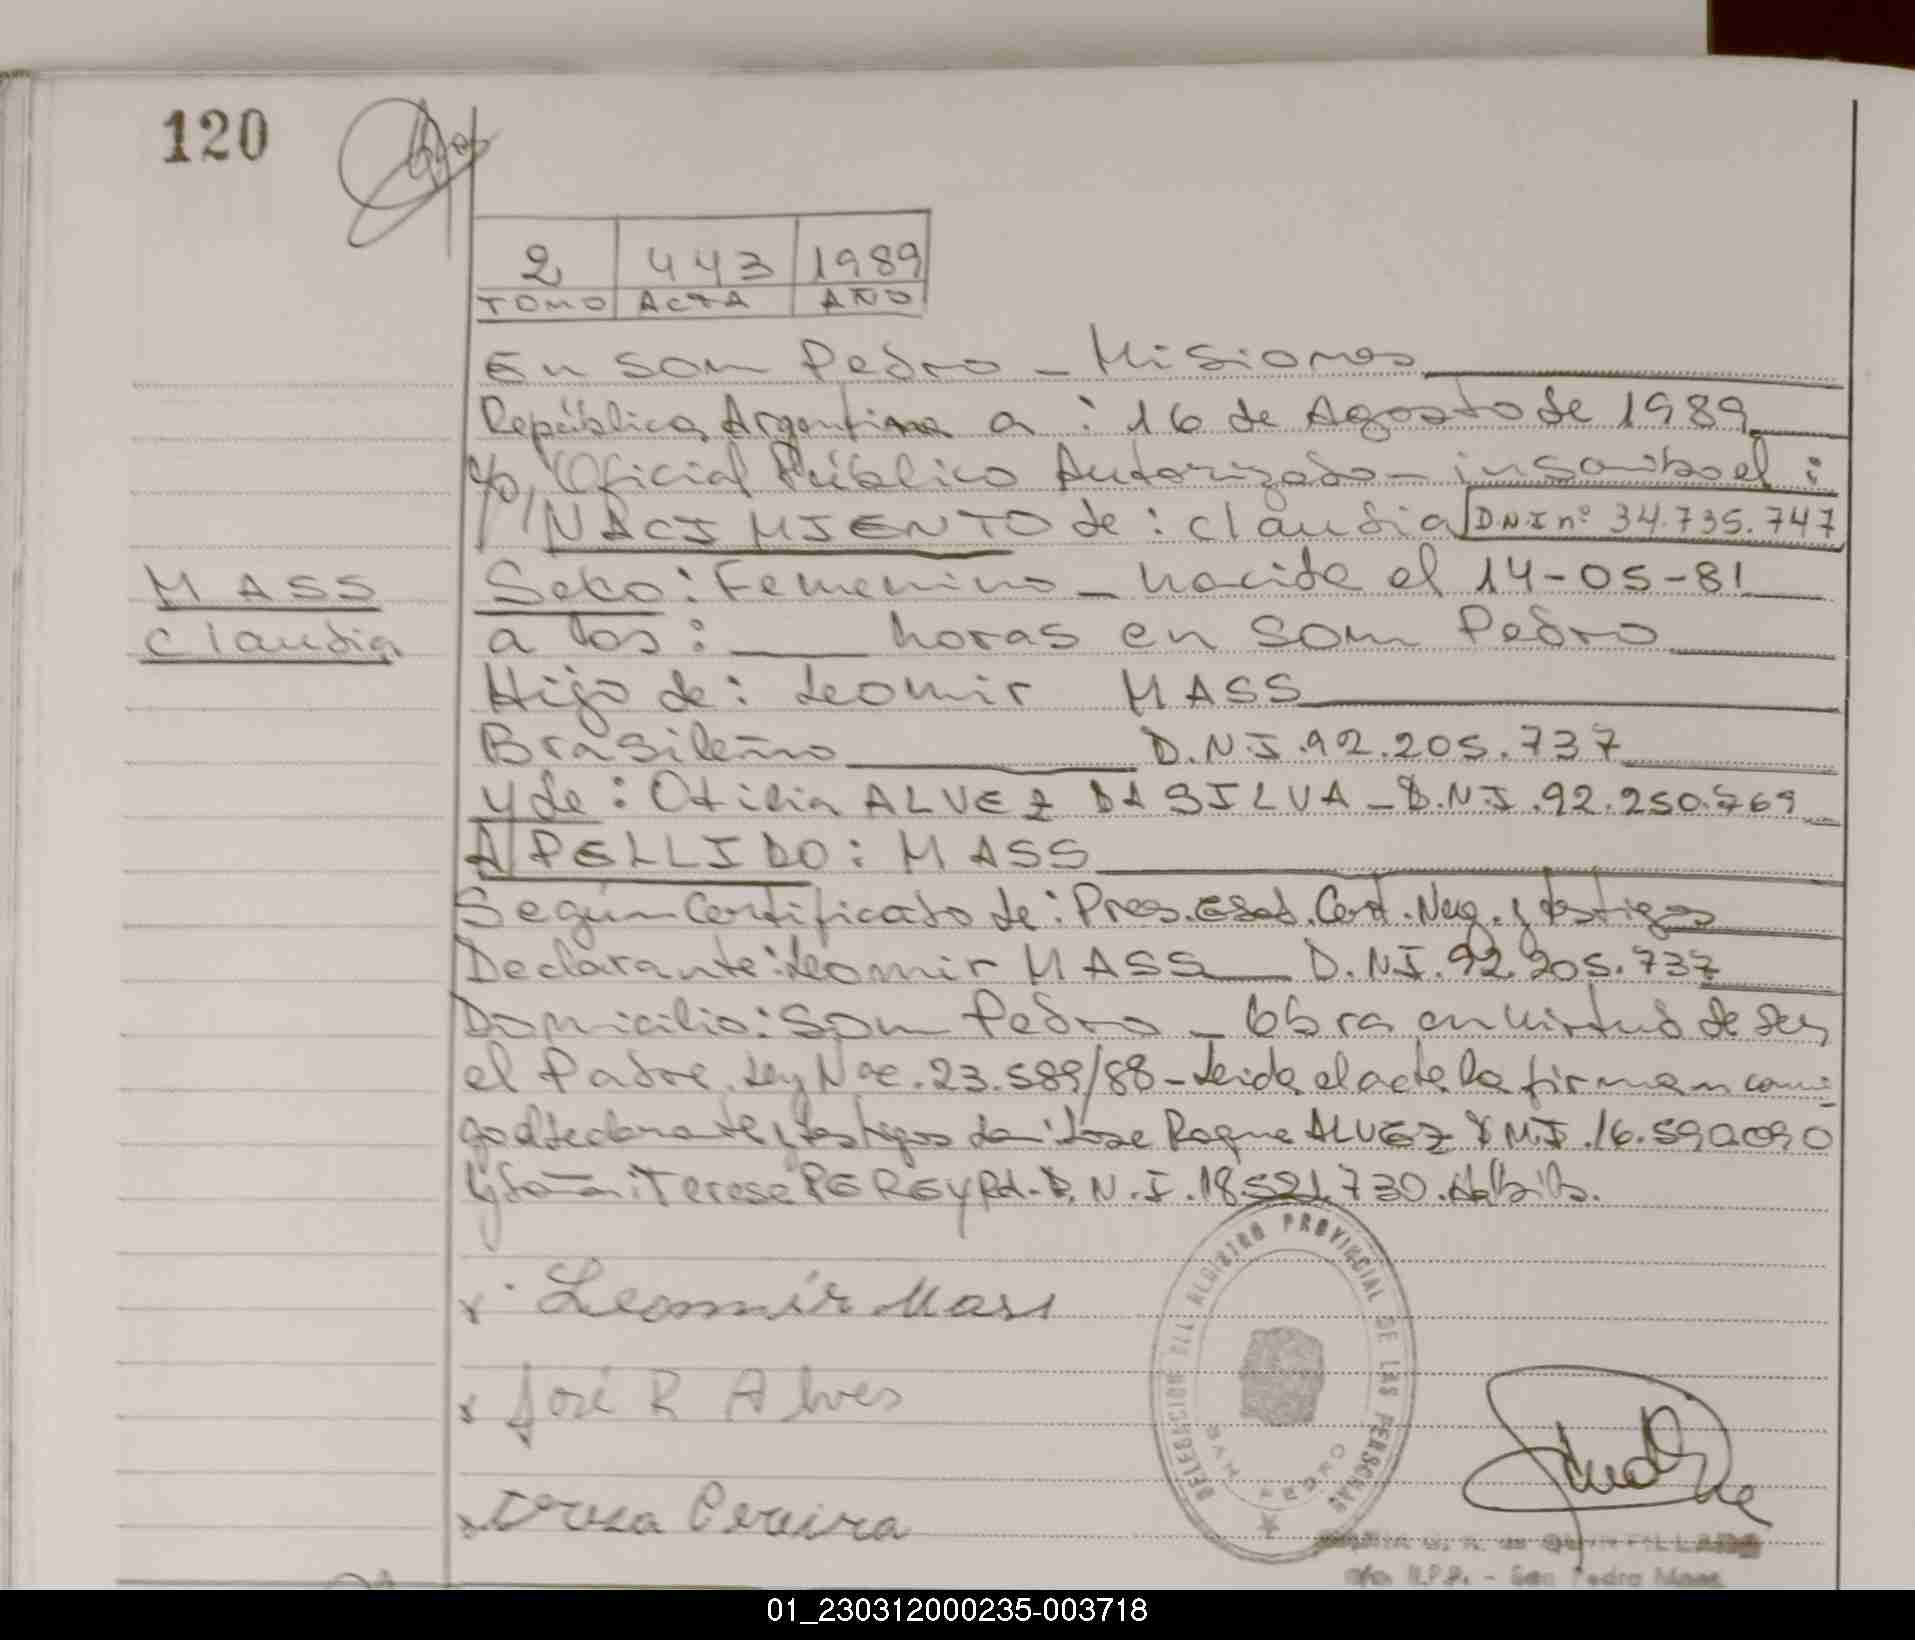 120
2 443 1989
TOMO ACTA AÑO
En San Pedro - Misiones
República Argentina a : 16 de Agosto de 1989
yo, Oficial Público Autorizado - inscribo el :
NACIMIENTO de : Claudia D.N.I nº 34.735.747
MASS
Claudia
Sexo : Femenino - nacida el 14-05-81
a las : ____ horas en San Pedro
Hijo de : Leomir MASS
Brasileño D.N.I. 92.205.737
y de : Otilia ALVEZ DA SILVA - D.N.I. 92.250.769
APELLIDO : MASS
Según Certificado de : Pres. Edad. Cert. Neg. y testigos
Declarante : Leomir MASS D.N.I. 92.205.737
Domicilio : San Pedro - Obra en virtud de ser
el Padre. Ley Nac. 23.589/88 - Leida el acta la firman conmi-
go el declarante y testigos don : Jose Roque ALVEZ D.N.I. 16.590.090
y doña : Teresa PEREYRA. D.N.I. 18.521.730.
x Leomir Mass
x José R Alves
x Tereza Pereira
DELEGACION DEL REGISTRO PROVINCIAL DE LAS PERSONAS
SAN PEDRO
de QUINTILLAN
R.P.P. - San Pedro Mnes.
01_230312000235-003718